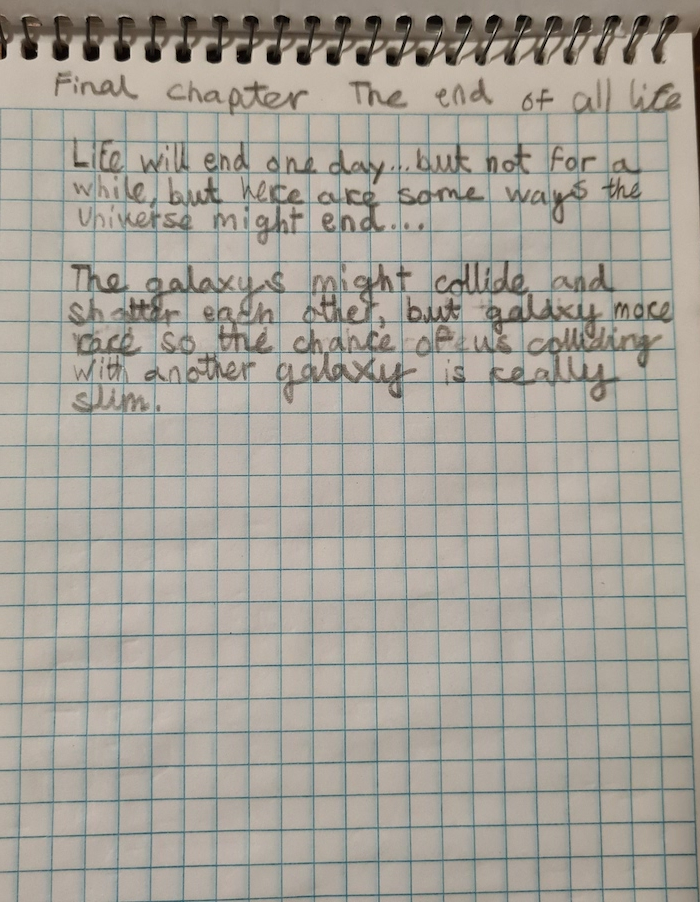 Final chapter The end of all life
Life will end one day...but not for a
while, but here are some ways the
Universe might end...
The galaxys might collide and
shatter each other, but galaxy more
rare so the chance of us colliding
with another galaxy is really
slim.